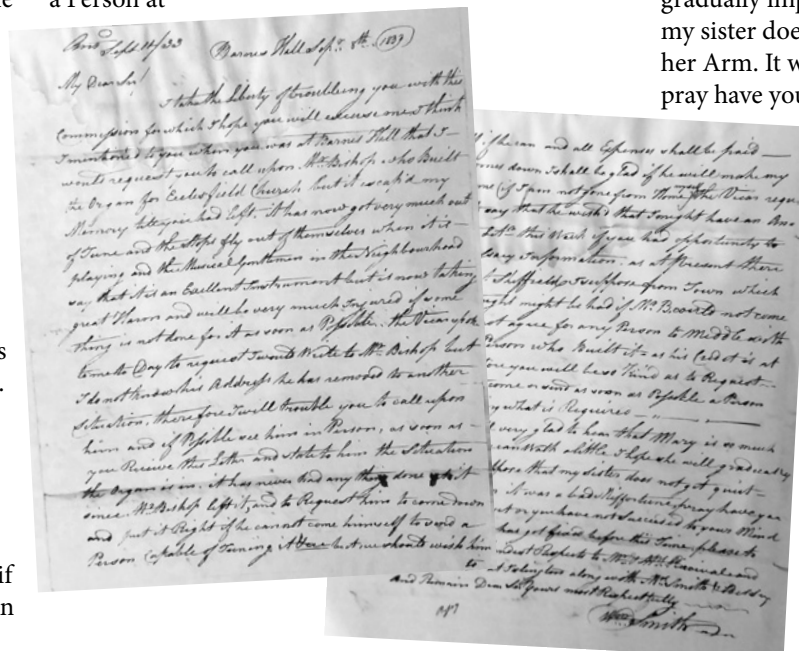 a Person at
gradually imp
my sister doe
her Arm. It w
pray have you
s
.
if
n
Ansd Sept 11/33
Barnes Hall Sepr. 8th. 1833
My Dear Sir!
I take the Liberty of troubling you with this
Commission for which I hope you will excuse me I think
I mentioned to you when you was at Barnes Hall that I
would request you to call upon Mr. Bishop who Built
the Organ for Ecclesfield Church but it escap'd my
Memory till you had Left. it has now got very much out
of Tune and the Stops fly out of themselves when it is
playing and the Musical Gentlemen in this Neighbourhood
say that it is an Exellent Instrument but is now taking
great Harm and will be very much Injured if some
thing is not done for it as soon as Possible. the Vicar
to me to Day to request I would Write to Mr. Bishop but
I do not know his Address he has removed to another
Situation, therefore I will trouble you to call upon
him and if Possible see him in Person, as soon as
you Receive this Letter and state to him the Situation
the Organ is in. it has never had any thing done at it
since Mr. Bishop left it, and to Request him to come down
and put it Right if he cannot come himself to send a
Person Capable of Tuning it but we should wish him
to
if he can and all Expenses shall be paid
down I shall be glad if he will make my
if I am not gone from Home, the Vicar
say that he wish'd that I might have an
this Week if you had opportunity to
Information. as at Present there
Sheffield, I suppose from Town which
might be had if Mr. B would not come
not agree for any Person to Middle with
Person who Built it as his Credit is at
you will be so Kind as to Request
come or send as soon as Possible a Person
what is Requires
very glad to hear that Mary is so much
Walk a little I hope she will gradually
that my sister does not get quit
it was a bad Misfortune, pray have you
or you have not Succeeded to your Mind
has got fixed before this Time, please to
Respects to Mr. & Mrs. Percival and
at Islington along with Mrs. Smith & Betsey
and Remain Dear Sir yours most Respectfully
Wm. Smith